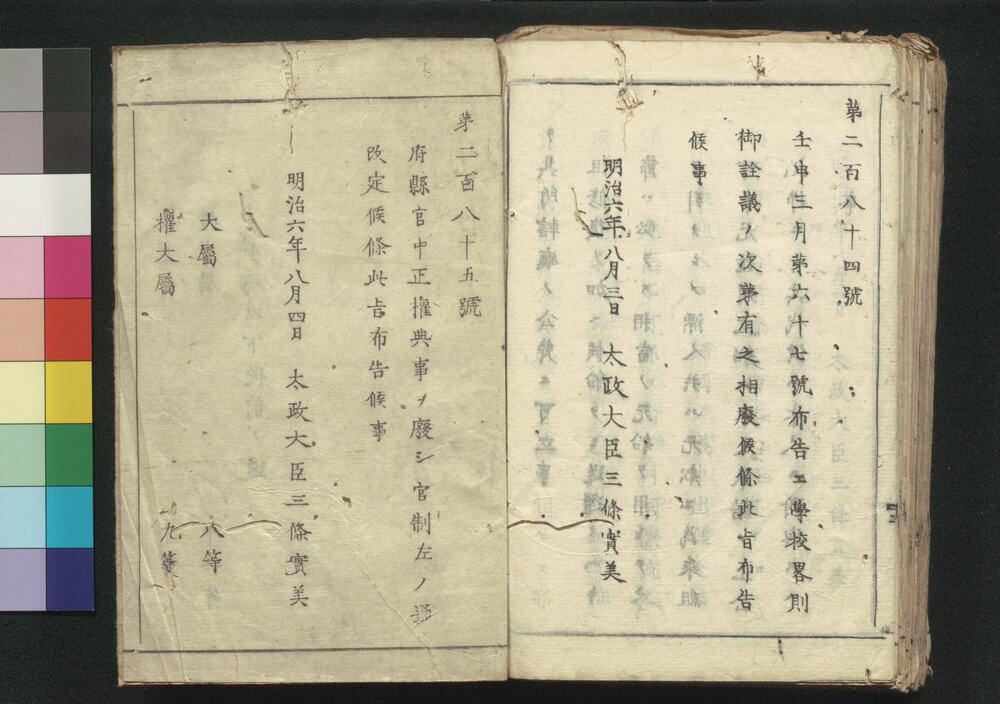 第二百八十四號
壬申三月第六十七號布告工學校畧則
御詮議ノ次第有之相廢候條此旨布告
候事
明治六年八月三日　太政大臣三條實美
第二百八十五號
府縣官中正權典事ヲ廢シ官制左ノ通
改定候條此旨布告候事
明治六年八月四日　太政大臣三條實美
大屬　八等
權大屬　九等